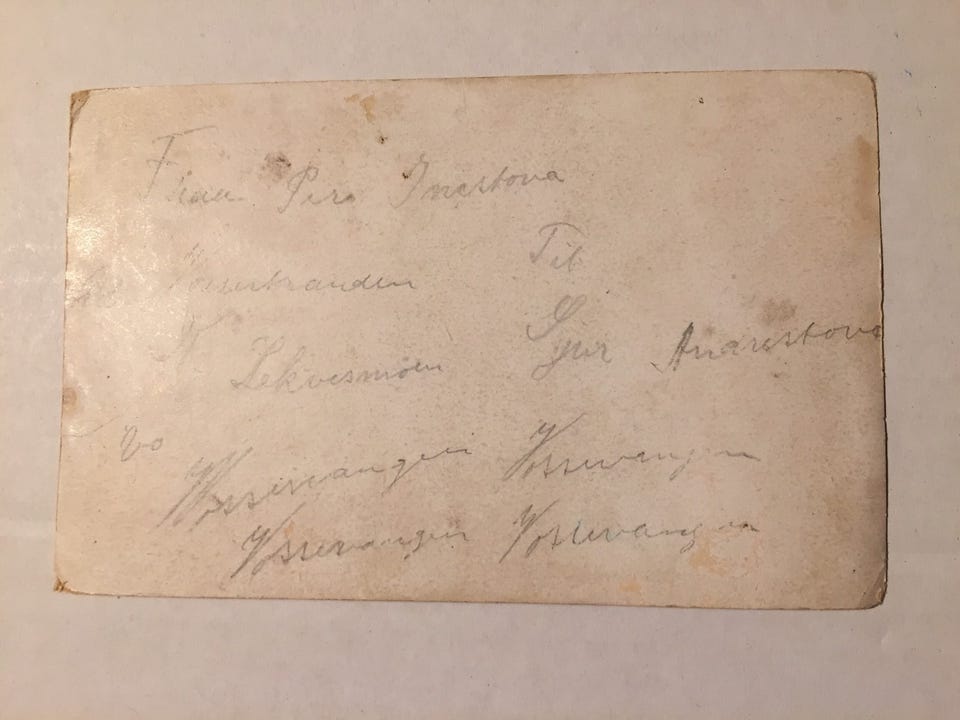 Fraa Per Inestova
Til
Lekvesmoen
Sjur Anarestova
Vo
Vossevangen Vossevangen
Vossevangen Vossevangen